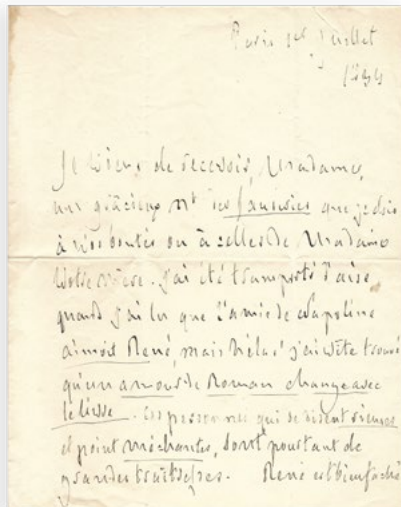 Paris 1er Juillet
Je viens de recevoir, Madame,
un gracieux que je dois
à vos bontés ou à celles de Madame
votre mère. j'ai été transporté d'aise,
quand j'ai lu que l'amie de
aimoit René, mais hélas! j'ai vite trouvé
qu'un amour de Roman change avec
. Les personnes qui se disent
et point méchantes, sont pourtant de
grandes traîtresses. René est bien fâché